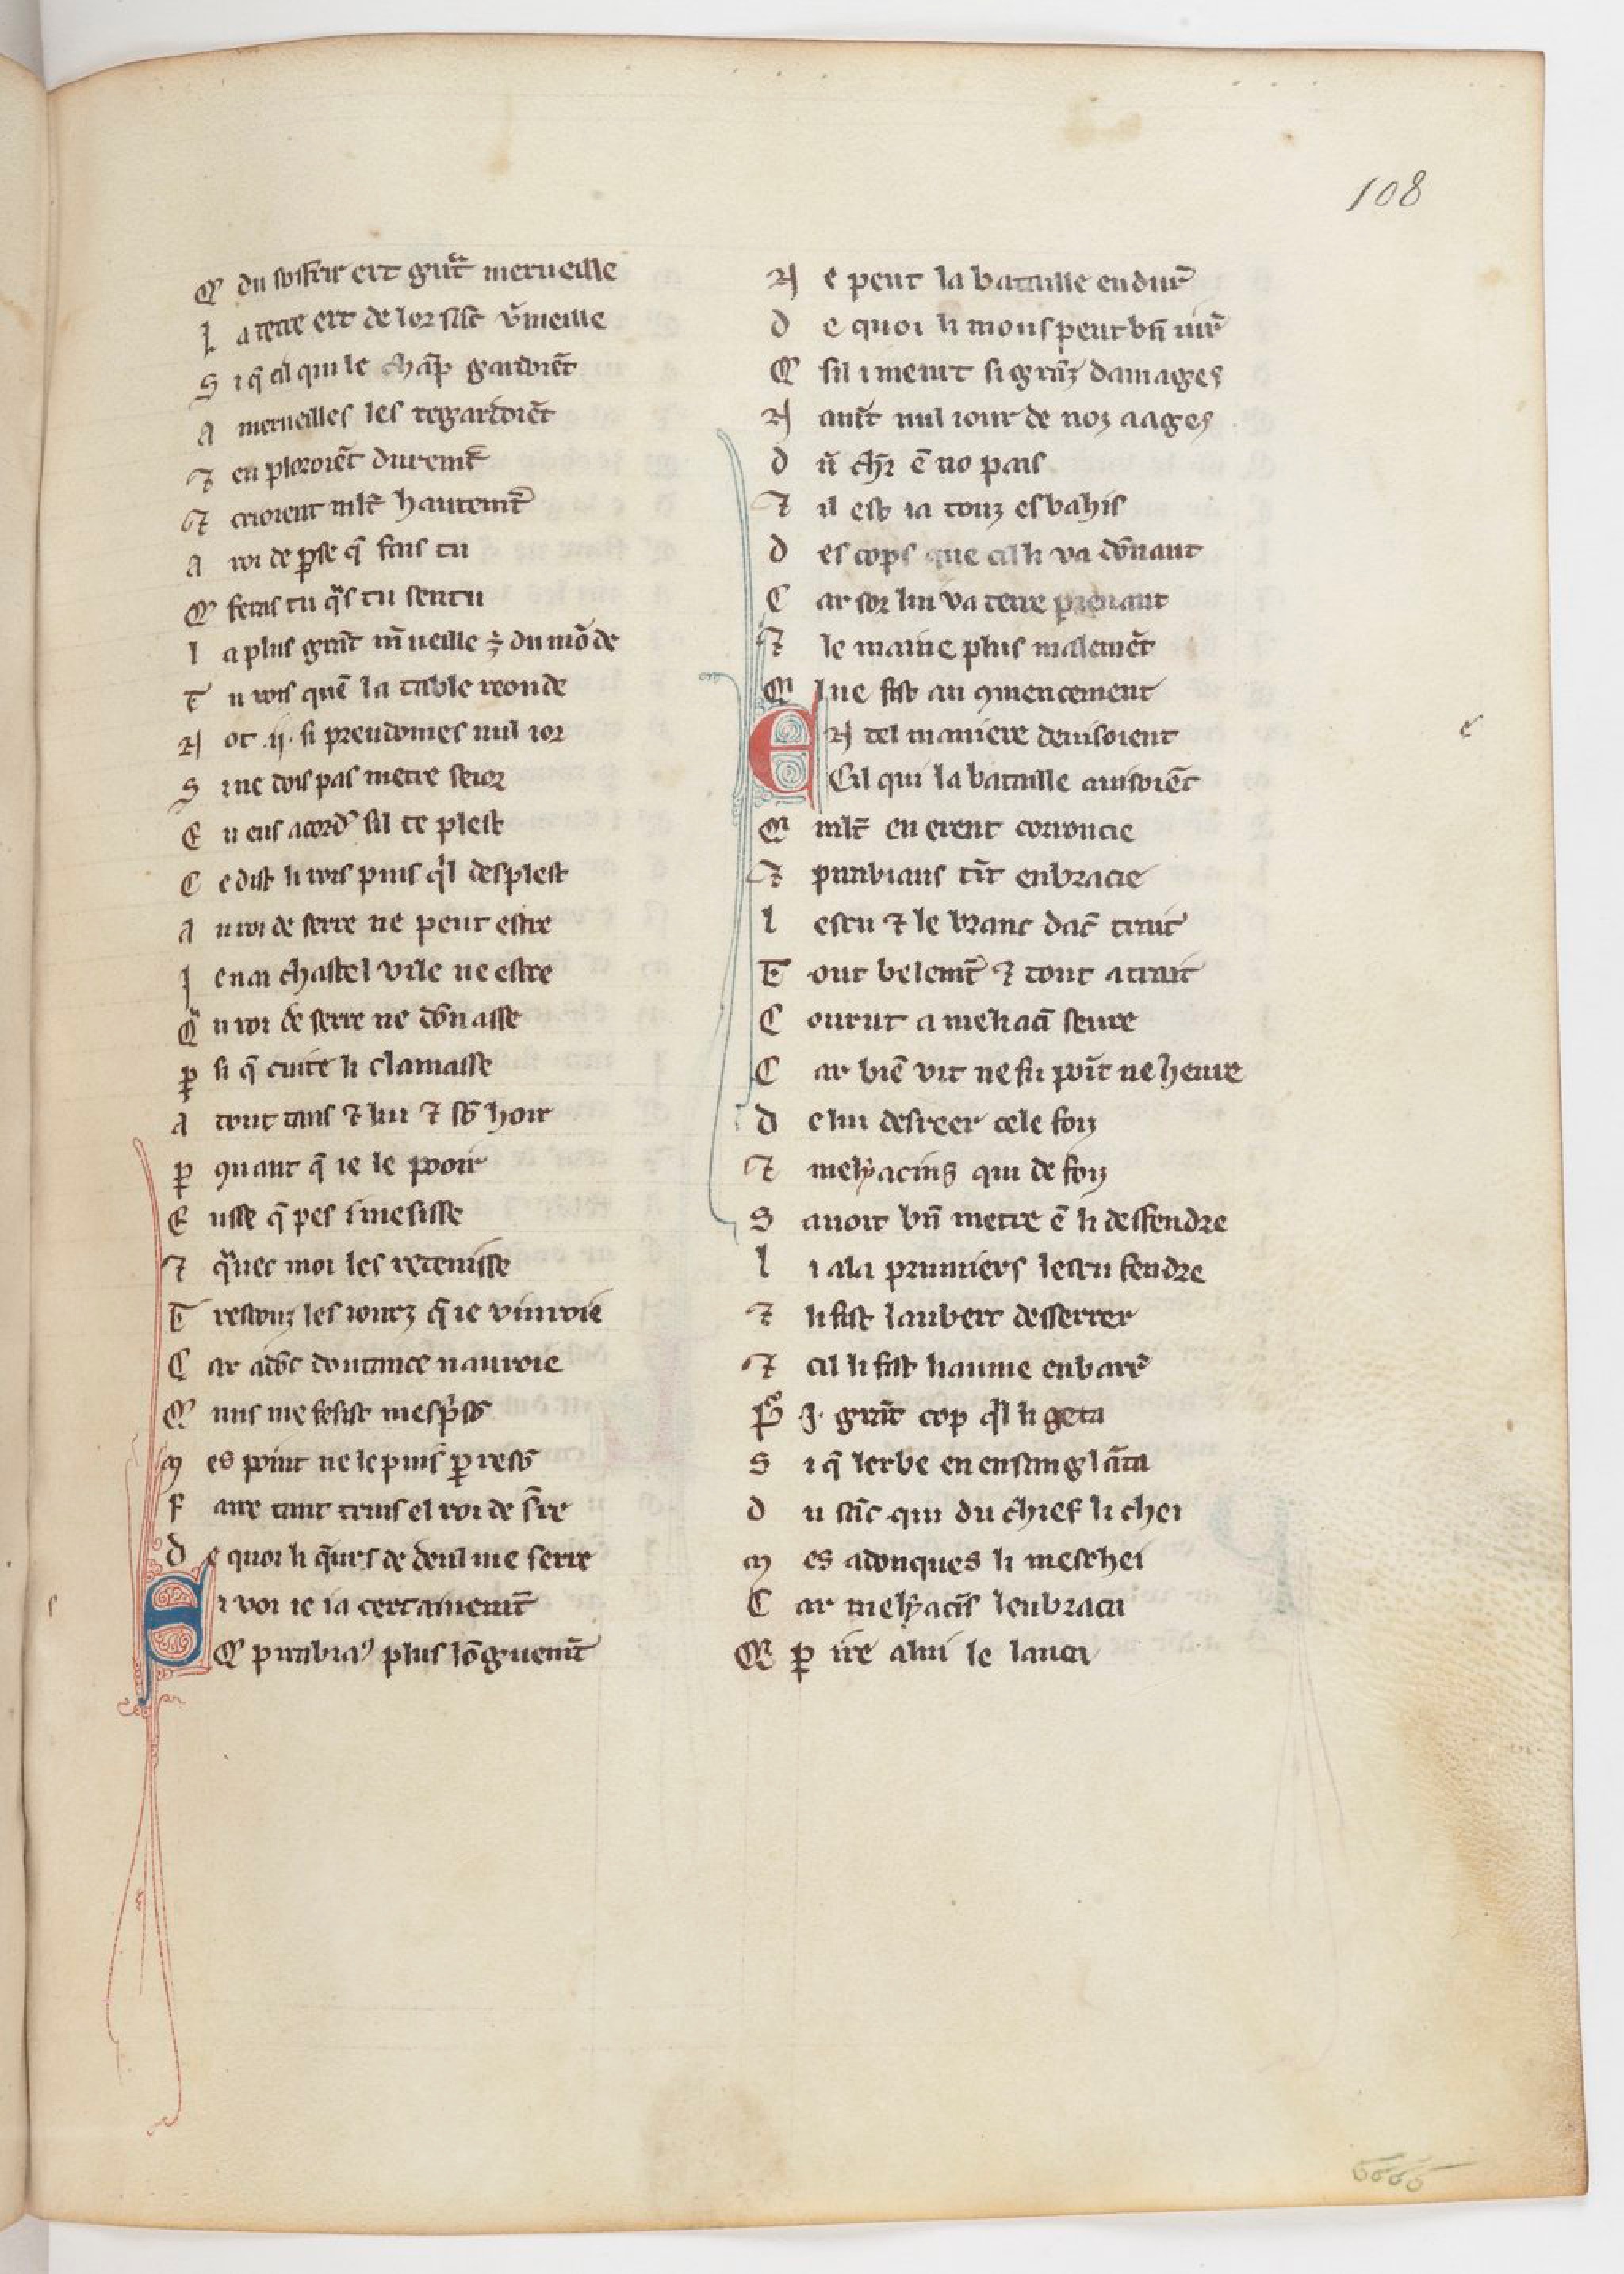 108
Q du soffrir ert grāt merueille
L a terre ert de lor sāc v̄meille
S i q̄ cil qui le chāp gardoiēt
A merueilles les regardoiēt
⁊ en plororēt duremt̄
⁊ crioient mlt̄ hautemt̄
A roi de ꝑse q̄ feras tu
Q feras tu q̄s tu sentu
L a plus grāt m̄ueille ÷ du mōde
T u vois quē la table reonde
N ot .ij. si preudomes nul ior
S i ne dois pas metre seior
E n eus acord' sil te plest
C e dist li rois puis q'l desplest
A u roi de serre ne peut estre
J e nai chastel vile ne estre
Q u roi de serre ne dōnasse
P si q̄ cuite li clamasse
A touz tans ⁊ lui ⁊ sō hoir
P quant q̄ ie le pooir
E usse q̄ pes i mesisse
⁊ q̄uec moi les retenisse
T restouz les iourz q̄ ie viuroie
C ar adōc doutance nauroie
Q nus me fesist mesp̄sō
M es point ne le puis ꝑ resō
F aire tant truis el roi de s̄re
D e quoi li q̄urs de deul me serre
S i voi ie ia certainemt̄
Q pirabia' plus lōguemt̄
N e peut la bataille endur̄
D e quoi li mons peut bn̄ iur̄
Q sil i meurt si grāz damages
N auīt nul iour de noz aages
D ū chr̄ ē no pais
⁊ il est ia touz esbahis
D es cops que cil li va dōnant
C ar sor lui va terre prenant
⁊ le maine plus malemēt
Q l ne fist au ꝯmencement
E N tel maniere deuisoient
Cil qui la bataille auisoiēt
Q mlt̄ en erent corroucie
⁊ pirabians tīt enbracie
L escu ⁊ le branc dac̄ trait
T out belemt̄ ⁊ tout a trait
C ourut a meliacī seure
C ar biē vit ne fu poīt ne heure
D e lui desreer cele foiz
⁊ melyacins qui de foiz
S auoit bn̄ metre ē li deffendre
L i ala prumiers lescu fendre
⁊ li fist lauberc desserrer
⁊ cil li fist liaume enbarr̄
P' .J. grāt cop q'l li geta
S i q̄ lerbe en ensanglāta
D u sāc qui du chief li chei
M es adonques li meschei
C ar melyacīs lenbraca
Q ꝑ ire a lui le lanca